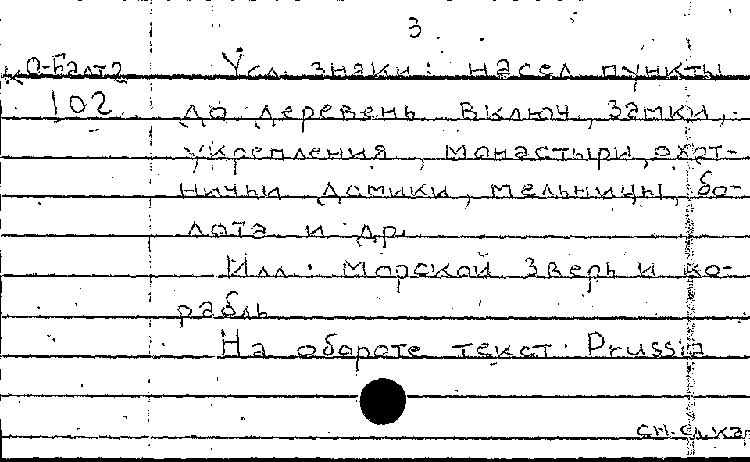 3
К О-Балт 2 Усл. знаки: насел пункты
102 до деревень включ, замки,
укрепления, монастыри, охот-
ничьи домики, мельницы, бо-
лота и др.
Илл: морской зверь и ко-
рабль
На обороте текст: Prussia
см. сл. кар